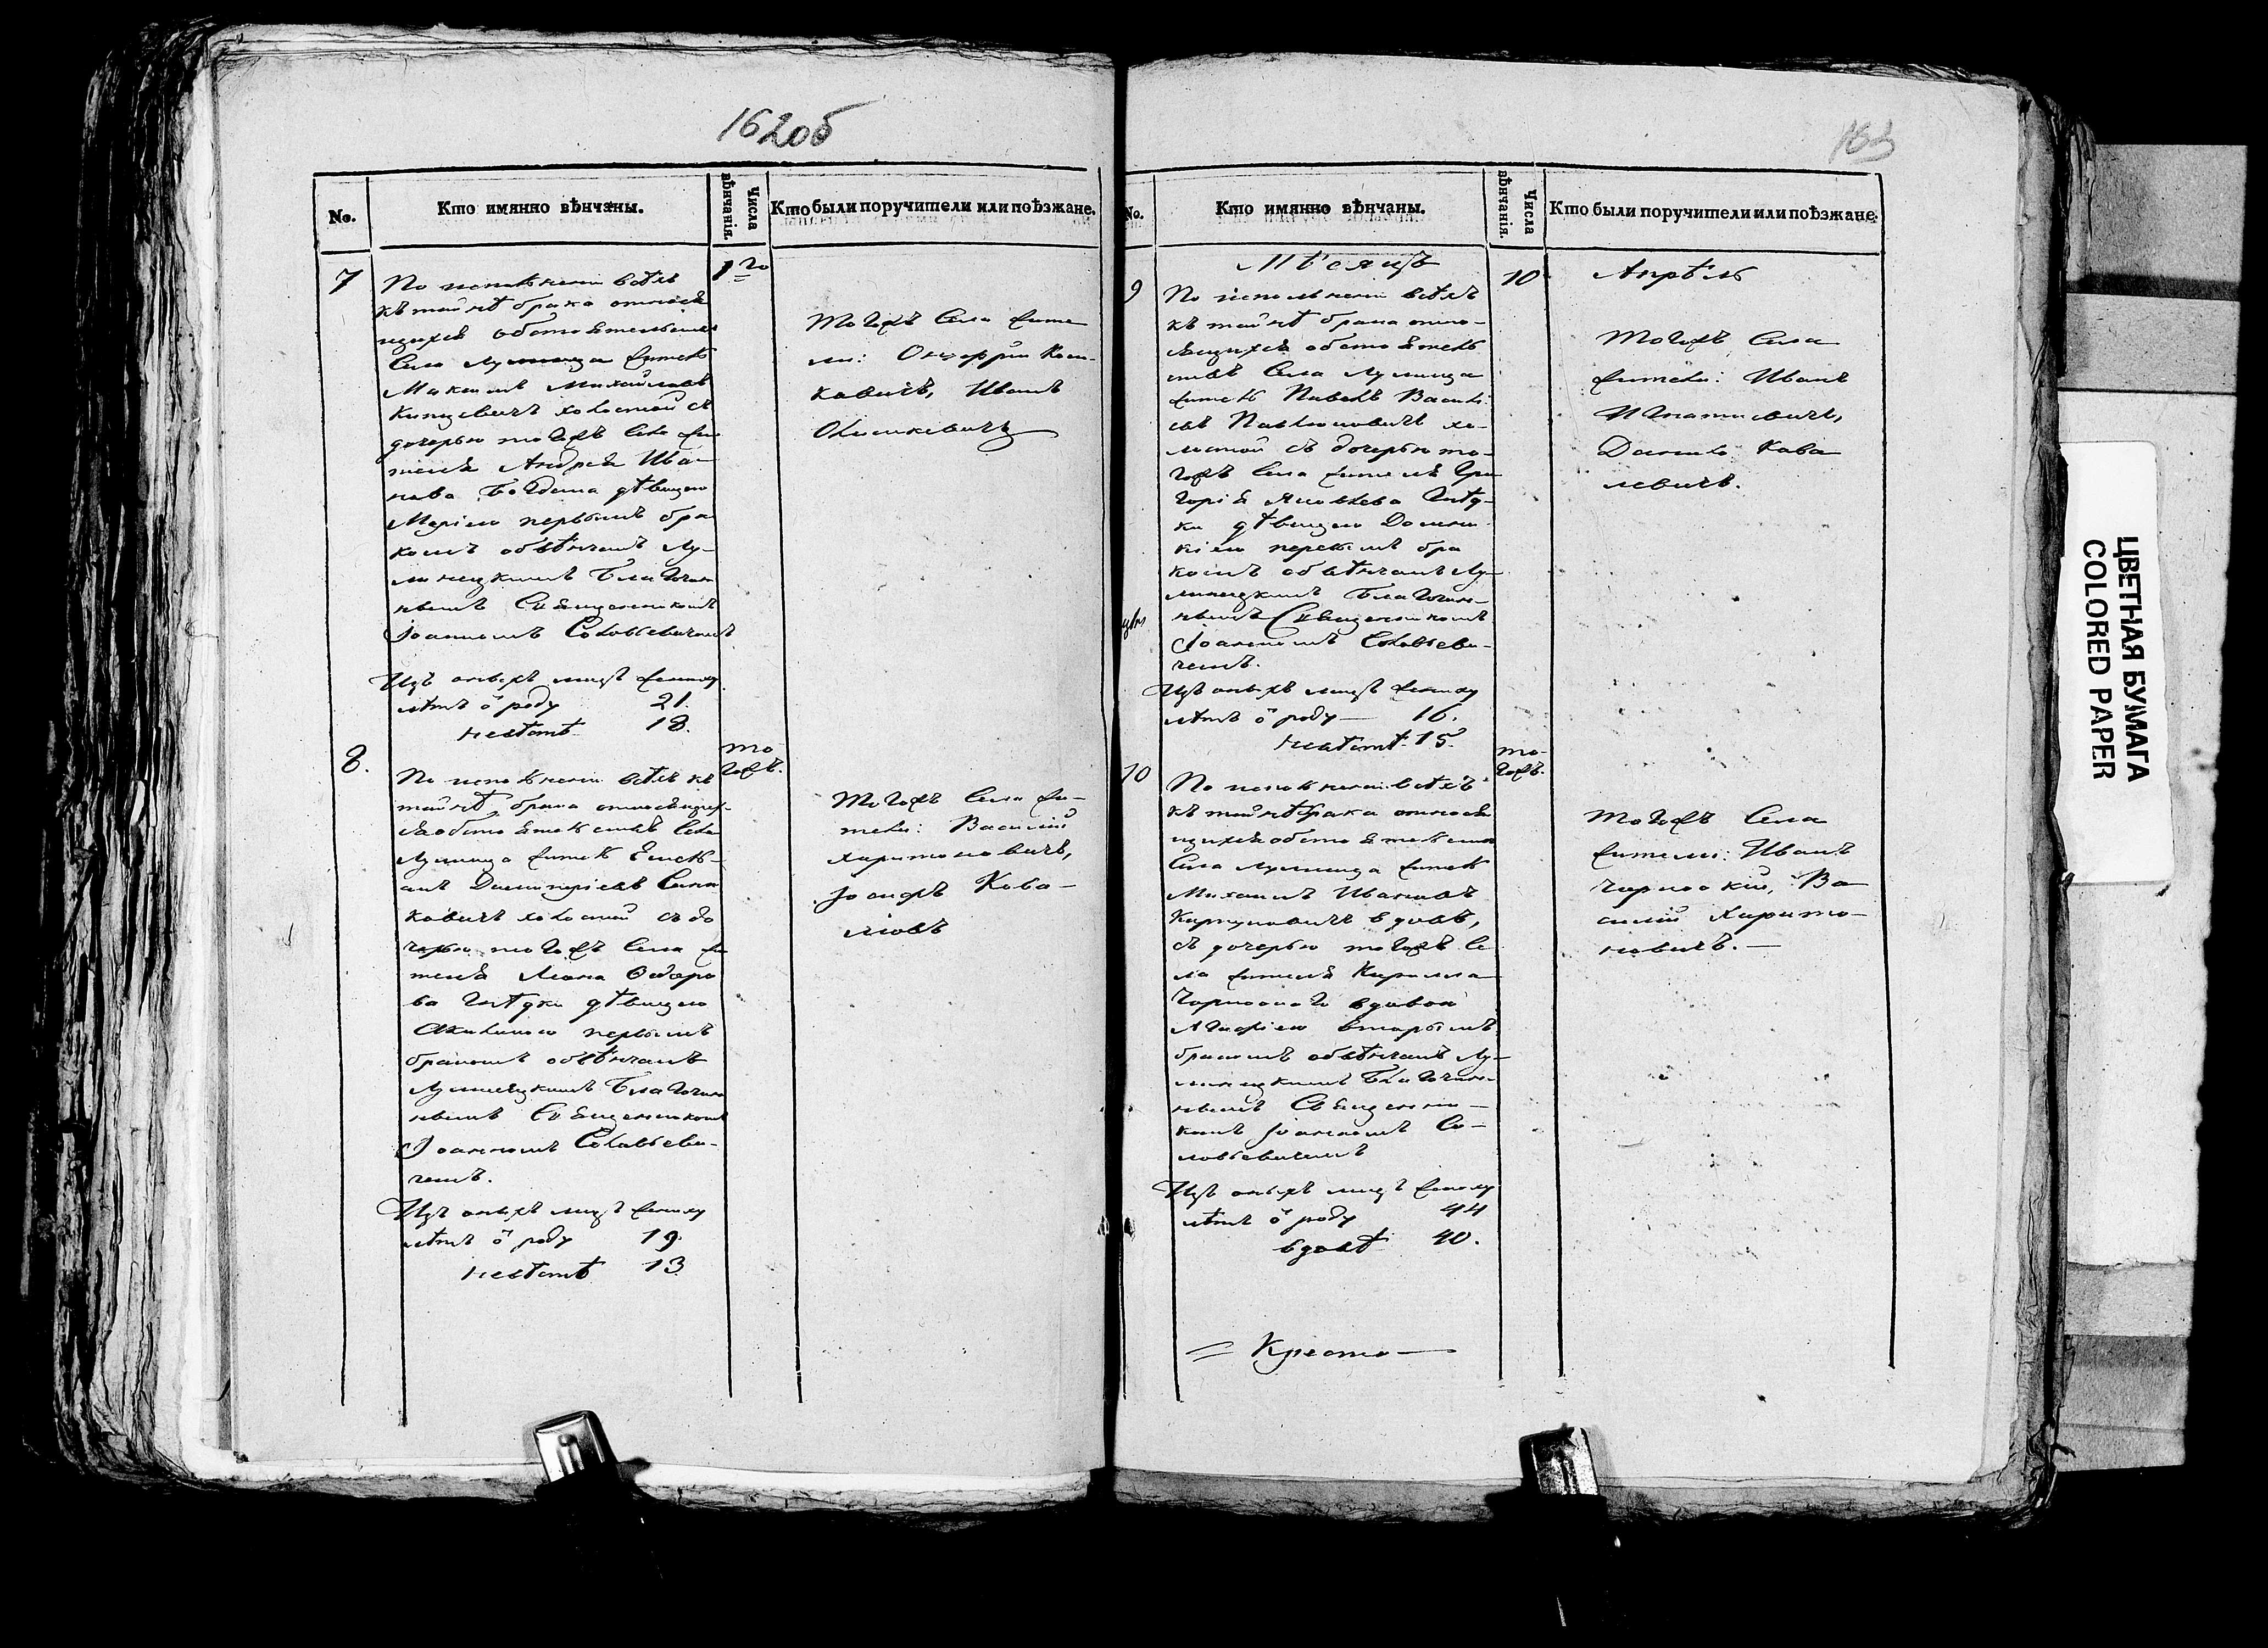 162об
No.
Кто имянно вѣнчаны.
Числа вѣнчанія.
Кто были поручители или поѣзжане.
7
По исполненіи всѣхъ
къ тайнѣ брака относя
щихся обстоятельствъ
Села Лунинца житель
Максимъ Михайловъ
холостой съ
дочерью тогожъ села жи
теля Андрея Ива
нова Богдана дѣвицею
Маріею первымъ бра
комъ обвѣнчанъ Лу-
нинецкимъ Благочин
нымъ Священникомъ
Іоанномъ Соловьевичемъ
Изъ оныхъ лицъ жениху
лѣтъ о͞ роду 21.
невѣстѣ 18.
1го
Тогожъ Села жите
ли: Онуфрій
Иванъ
8.
По исполненіи всѣхъ къ
тайнѣ брака относящих
ся обстоятельствъ Села
Лунинца житель
Димитріевъ
холостой съ до
черью тогожъ Села жи
теля Леона Ѳедоро
ва Гнѣдки дѣвицею
Акилиною первымъ
бракомъ обвѣнчанъ
Лунинецкимъ Благочин
нымъ Священникомъ
Іоанномъ Соловьеви-
чемъ.
Изъ оныхъ лицъ жениху
лѣтъ о͞ роду 19.
невѣстѣ 13
то
гожъ.
Тогожъ Села жи-
тели: Василій
Харитоновичъ,
Іосифъ Кова-
163
No.
Кто имянно вѣнчаны.
Числа вѣнчанія.
Кто были поручители или поѣзжане.
Мѣсяцъ
Апрѣль
9
По исполненіи всѣхъ
къ тайнѣ брака отно-
сящихся обстоятель
ствъ Села Лунинца
житель Павелъ Василь
евъ Павлюковичъ хо-
лостой съ дочерью то-
гожъ Села жителя Гри
горія Яковлева Гнѣд-
ки дѣвицею Домни-
кіею первымъ бра
комъ обвѣнчанъ Лу-
нинецкимъ Благочин-
нымъ Священникомъ
Іоанномъ Соловьеви-
чемъ.
Изъ оныхъ лицъ жениху
лѣтъ о͞ роду — 16.
невѣстѣ 15.
10
Тогожъ Села
жители: Иванъ
Игнатовичъ,
Данило Кова
левичъ.
10
По исполненіи всѣхъ
къ тайнѣ брака относя
щихся обстоятельствъ
Села Лунинца житель
Михаилъ Ивановъ
Карпуковичъ вдовъ,
съ дочерью тогожъ Се
ла жителя Кирилла
Чорноокаго вдовою
Агафіею вторымъ
бракомъ обвѣнчанъ Лу-
нинецкимъ Благочин-
нымъ Священни-
комъ Іоанномъ Со-
ловьевичемъ
Изъ оныхъ лицъ жениху
лѣтъ о͞ роду 44
вдовѣ 40.
то-
гожъ.
Тогожъ Села
жители: Иванъ
Чорноокій, Ва
силій Харито-
новичъ. —
ЦВЕТНАЯ БУМАГА
COLORED PAPER